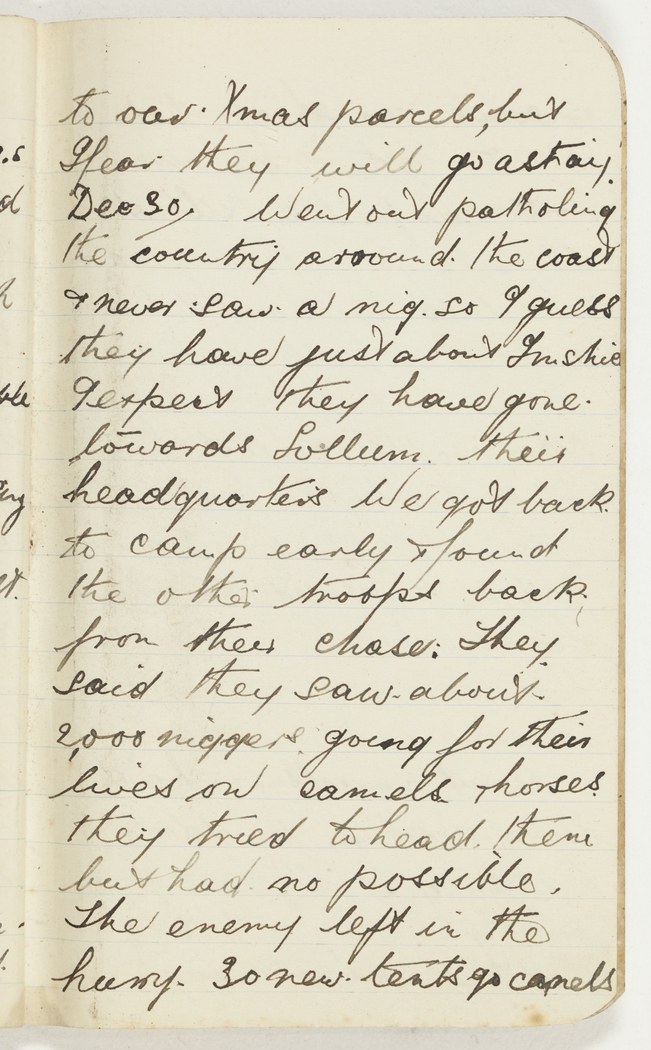 to our Xmas parcels, but
I fear they will go astray.
Dec 30. Went out patroling
the country arround the coast
& never saw a nig. so I guess
they have just about Imshie
I expect they have gone
towards Sollum. their
headquarters We got back
to camp early & found
the other troops back
from their chase. They
said they saw about
2,000 niggers going for their
lives on camels & horses
they tried to head them
but had no possible.
The enemy left in the
hurry. 30 new tents 90 camels